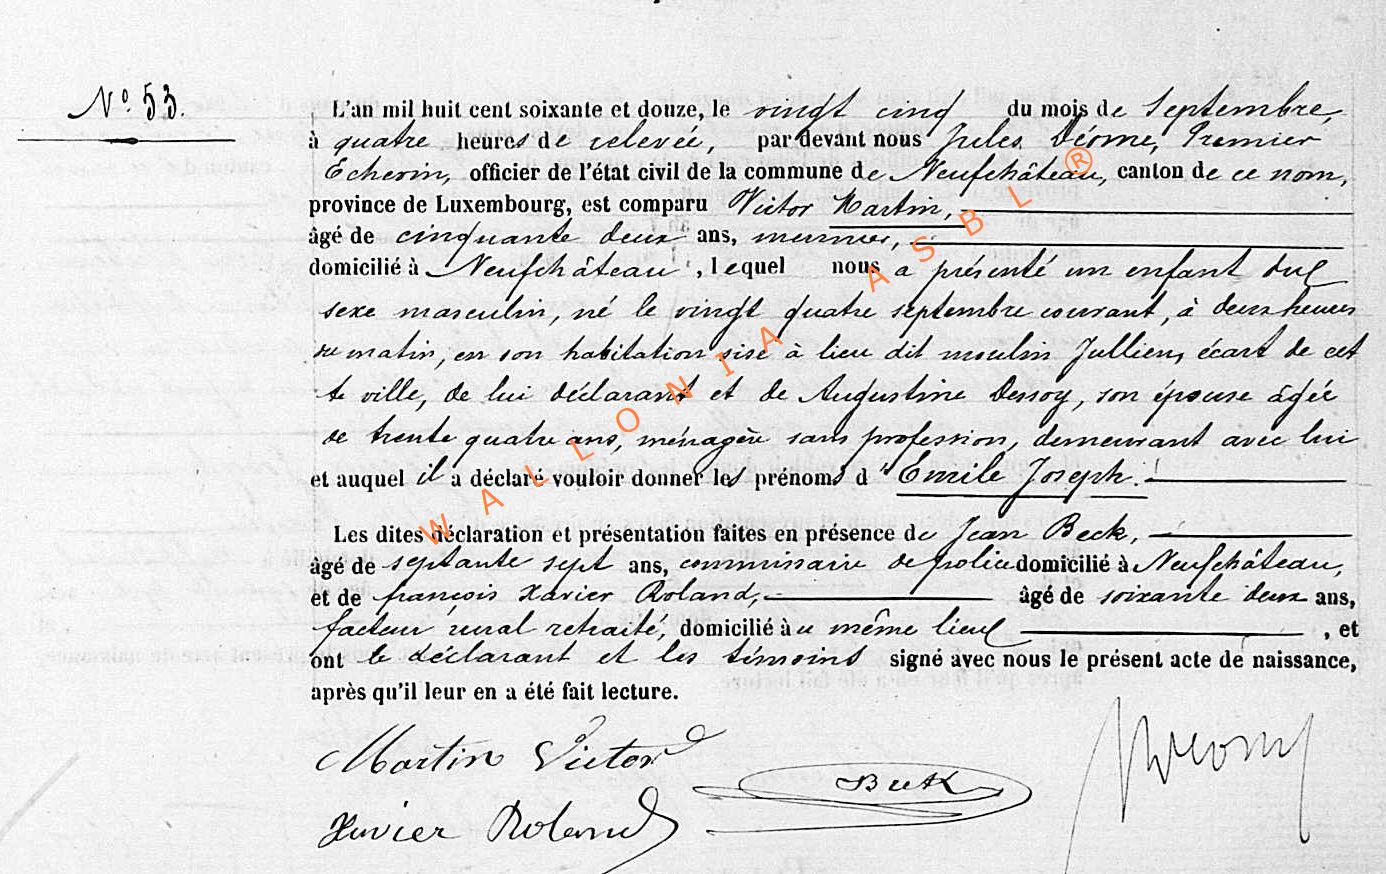 N° 53.
L'an mil huit cent soixante et douze, le vingt cinq du mois de Septembre,
à quatre heures de relevée, par devant nous Jules Déome, Premier
Echevin, officier de l'état civil de la commune de Neufchâteau, canton de ce nom,
province de Luxembourg, est comparu Victor Martin,
âgé de cinquante deux ans, meunier,
domicilié à Neufchâteau, lequel nous a présenté un enfant du
sexe masculin, né le vingt quatre septembre courant, à deux heures
du matin, en son habitation sise à lieu dit moulin Jullien, écart de cet
te ville, de lui déclarant et de Augustine Dessoy, son épouse âgée
de trente quatre ans, ménagère sans profession, demeurant avec lui
et auquel il a déclaré vouloir donner les prénoms d'Emile Joseph.
Les dites déclaration et présentation faites en présence de Jean Beck,
âgé de septante sept ans, commissaire de police domicilié à Neufchâteau,
et de françois Xavier Roland, âgé de soixante deux ans,
facteur rural retraité, domicilié au même lieu, et
ont le déclarant et les témoins signé avec nous le présent acte de naissance,
après qu'il leur en a été fait lecture.
Martin Victor
Beck
Xavier Roland
WALLONIA ASBL ®